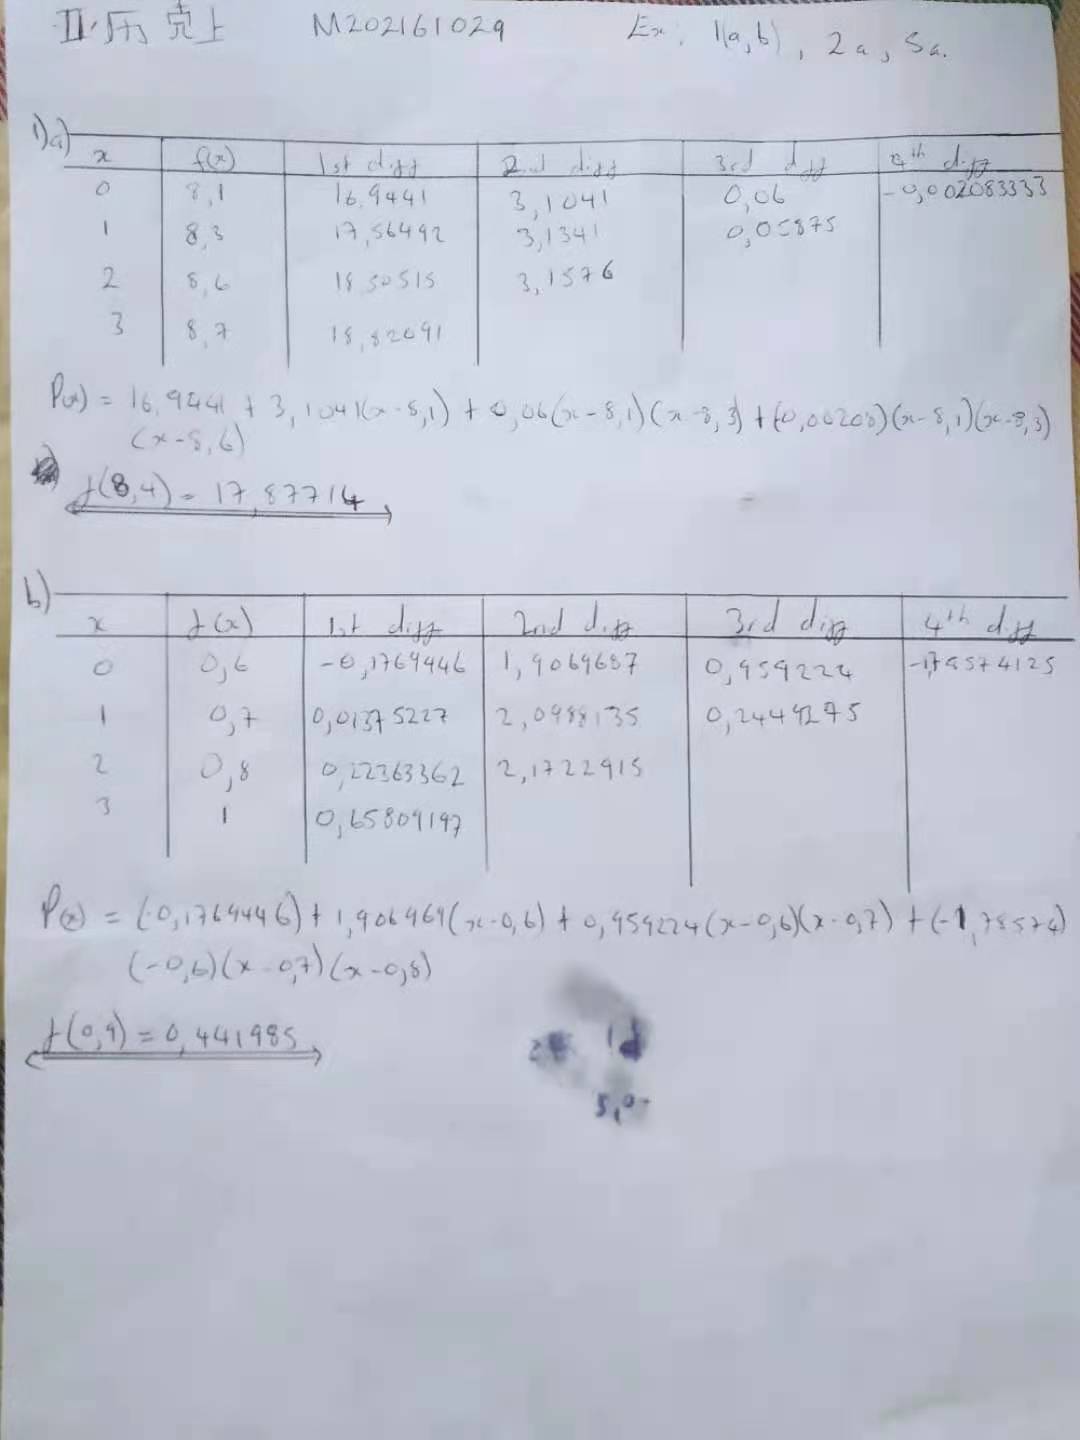 M202161029 Ex: 1(a,b), 2a, 5a.
1)a)
x f(x) 1st diff 2nd diff 3rd diff 4th diff
0 8,1 16,9441 3,1041 0,06 -0,002083333
1 8,3 17,56492 3,1341 0,05875
2 8,6 18,50515 3,1576
3 8,7 18,82091
P(x) = 16,9441 + 3,1041(x-8,1) + 0,06(x-8,1)(x-8,3) + (-0,00208)(x-8,1)(x-8,3)
(x-8,6)
f(8,4) = 17,87714
b)
x f(x) 1st diff 2nd diff 3rd diff 4th diff
0 0,6 -0,1769446 1,9069687 0,959224 -1,78574125
1 0,7 0,01375227 2,0988135 0,2449275
2 0,8 0,22363362 2,1722915
3 1 0,65809197
P(x) = (-0,1769446) + 1,906969(x-0,6) + 0,959224(x-0,6)(x-0,7) + (-1,78574)
(-0,6)(x-0,7)(x-0,8)
f(0,9) = 0,441985